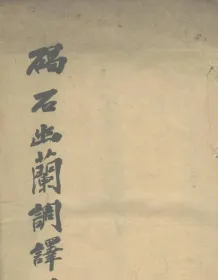 碣石幽蘭調譯